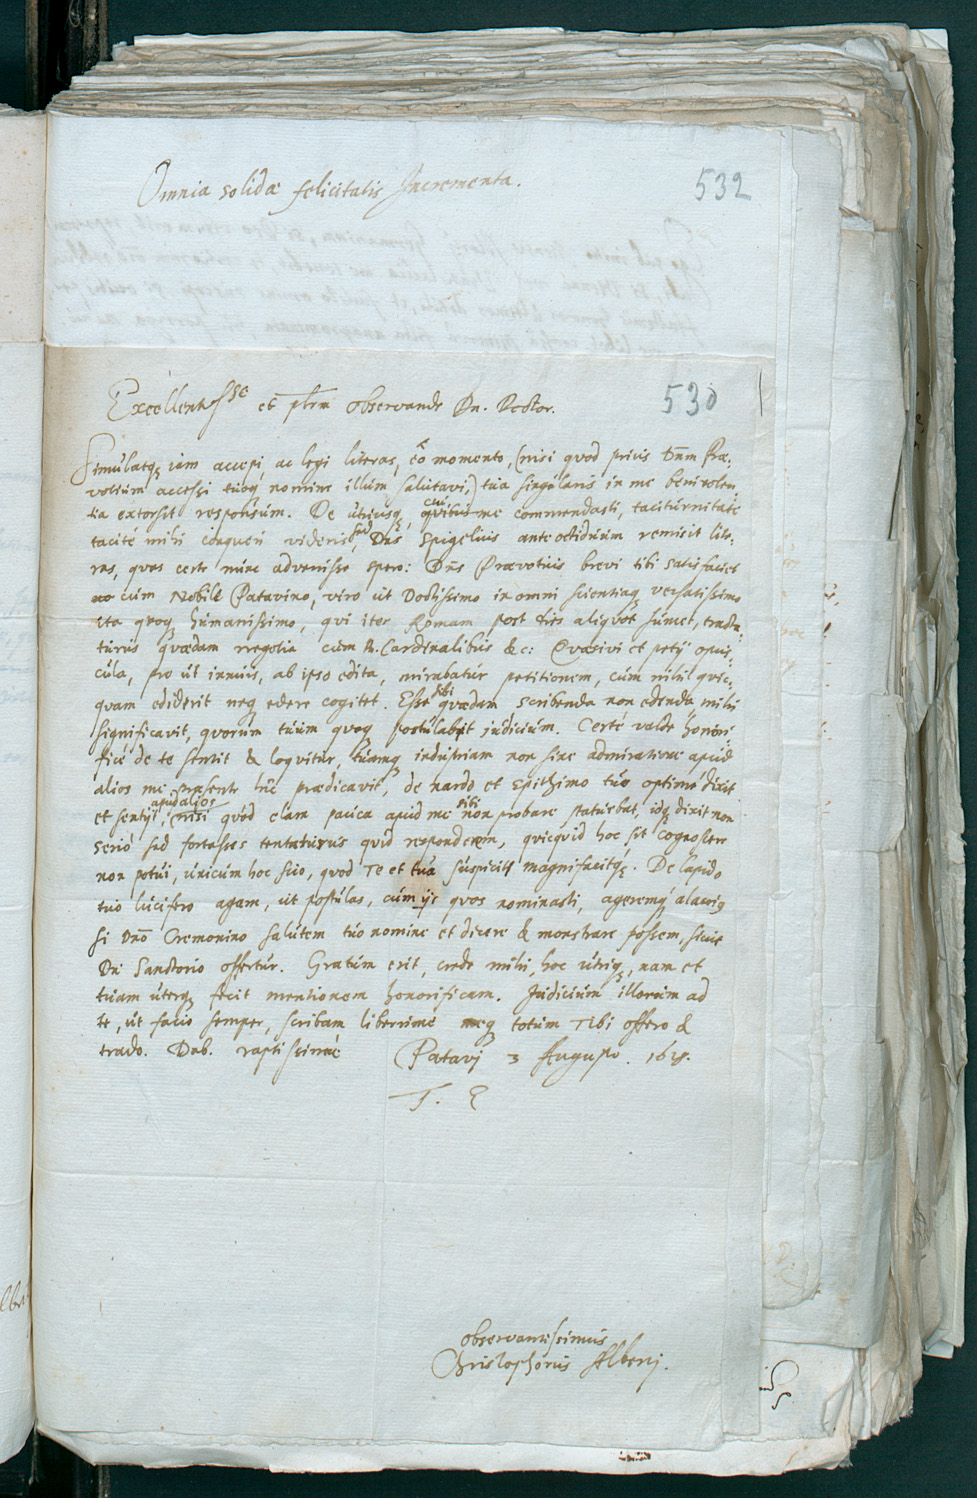 Omnia solidæ felicitatis Incrementa.
532
Excellentiss.se et plrm observande Dn. Doctor.
530
Simulatq; iam accepi ac legi literas, eo momento, (nisi quod prius Dnm Præ-
votium accessi tuoq; nomine illum salutavi,) tua singularis in me benevolen-
tia extorsit responsum. De utriusq;, cui quibus me commendasti, taciturnitate
tacitè mihi conqueri videris, sed Dns Spigelius ante octiduum remisit lite-
ras, quas certe nunc advenisse spero: Dns Prævotius brevi tibi satisfaciet
cum Nobile Patavino, viro ut Doctissimo in omni scientiaq; versatissimo
ita quoq; humanissimo, qui iter Romam post dies aliquot sumet, tracta-
turus quædam negotia cum R. Cardinalibus &c: Quæsivi et petij opus-
cula, pro ut innuis, ab ipso edita, mirabatur petitionem, cum nihil quic-
quam ediderit neq; edere cogitet. Esse sibi quædam scribenda non edenda mihi
significavit, quorum tuum quoq; postulabit judicium. Certè valde honori-
ficè de te sentit & loquitur, tuamq; industriam non sine admiratione apud
alios me præsente hic prædicavit, de nardo et Epithimo tuo optime dixit
et sensit, apud alios (nisi quòd clam pauca apud me sibi non probare statuebat, idq; dixit non
seriò sed fortasses tentaturus quid responderem, quicquid hoc sit cognoscere
non potui, unicum hoc scio, quod Te et tua suspicit magnifacitq;. De lapide
tuo lucifero agam, ut postulas, cum ijs quos nominasti, ageremq; alacriq
si Dno Cremonino salutem tuo nomine et dicere & monstrare possem, sicut
Dn Sanctorio offertur. Gratum erit, crede mihi, hoc utriq;, nam et
tuam uterq; fecit mentionem honorificam. Judicium illorum ad
te, ut facio semper, scribam liberrimè meq; totum Tibi offero &
trado. Dab. raptissimè Patavj 3 Augusto. 1618.
T. E
observantissimus
Christophorus Albenj.